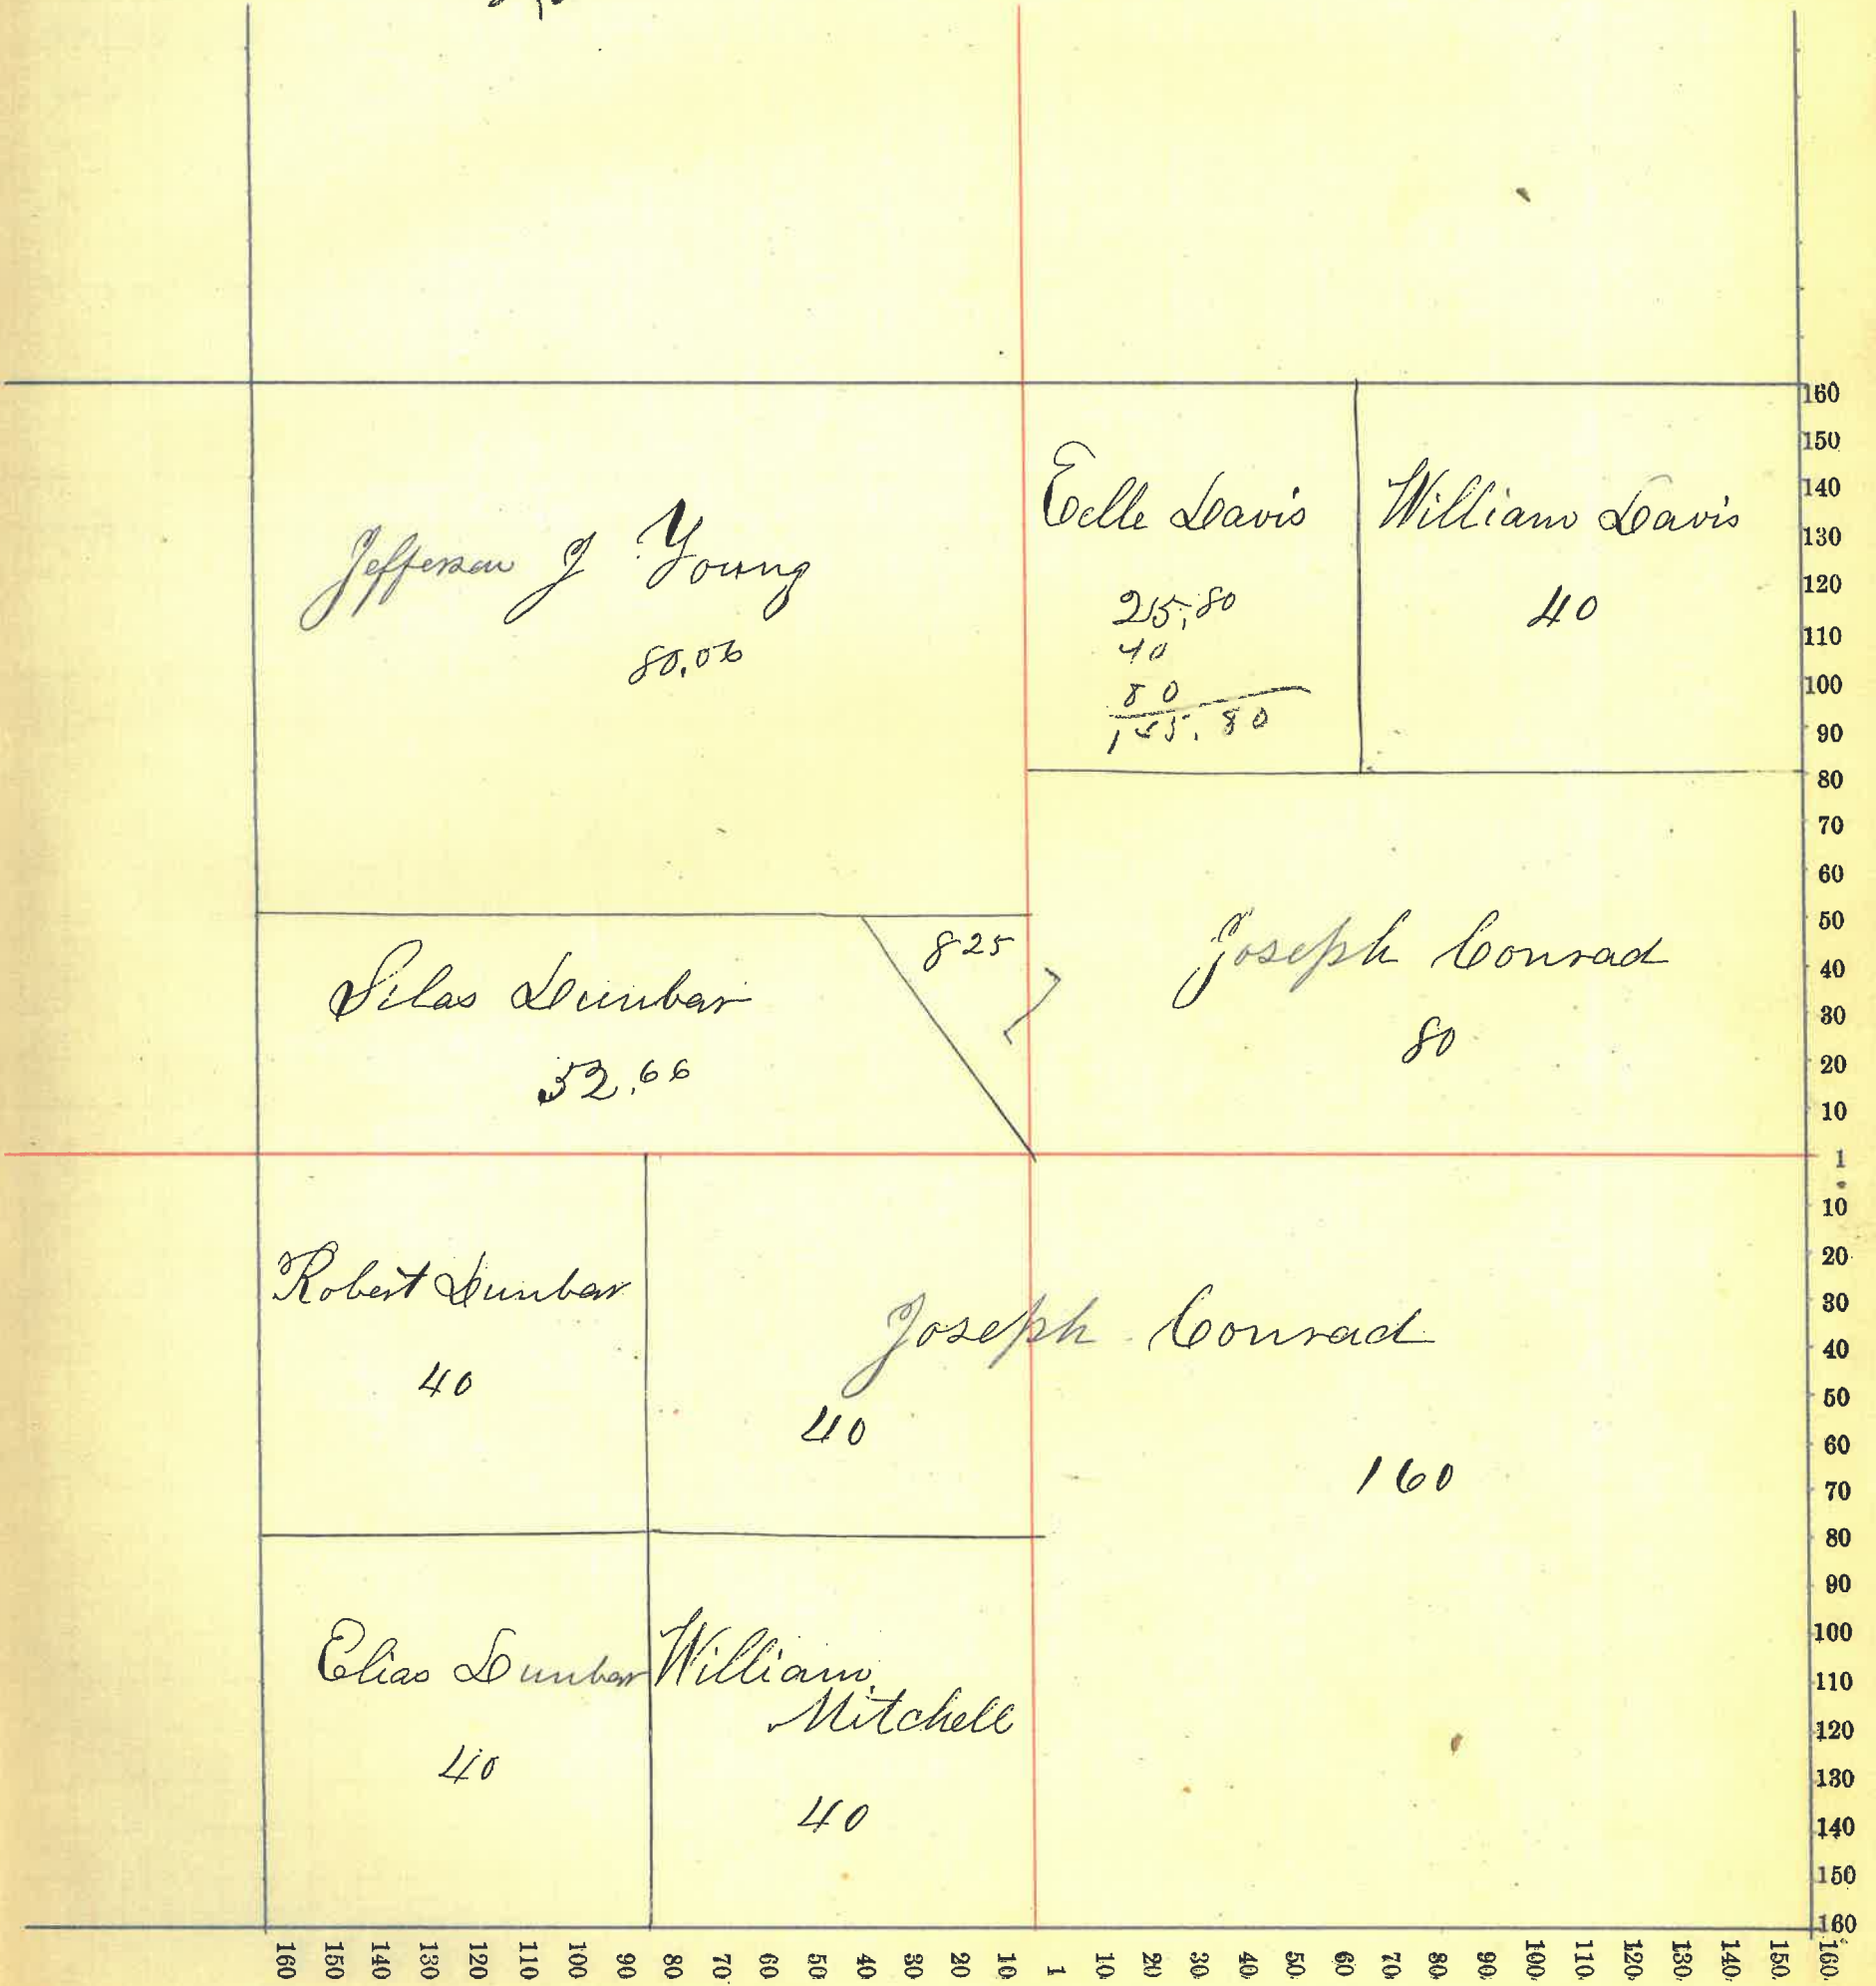 Jefferson J Young
80.06
Celle Davis
25.80
40
80
155.80
William Davis
40
Silas Dunbar
52.66
825
Joseph Conrad
80
Robert Dunbar
40
Joseph Conrad
40
160
Elias Dunbar
40
William
Mitchell
40
160
150
140
130
120
110
100
90
80
70
60
50
40
30
20
10
1
10
20
30
40
50
60
70
80
90
100
110
120
130
140
150
160
160 150 140 130 120 110 100 90 80 70 60 50 40 30 20 10 1 10 20 30 40 50 60 70 80 90 100 110 120 130 140 150 160